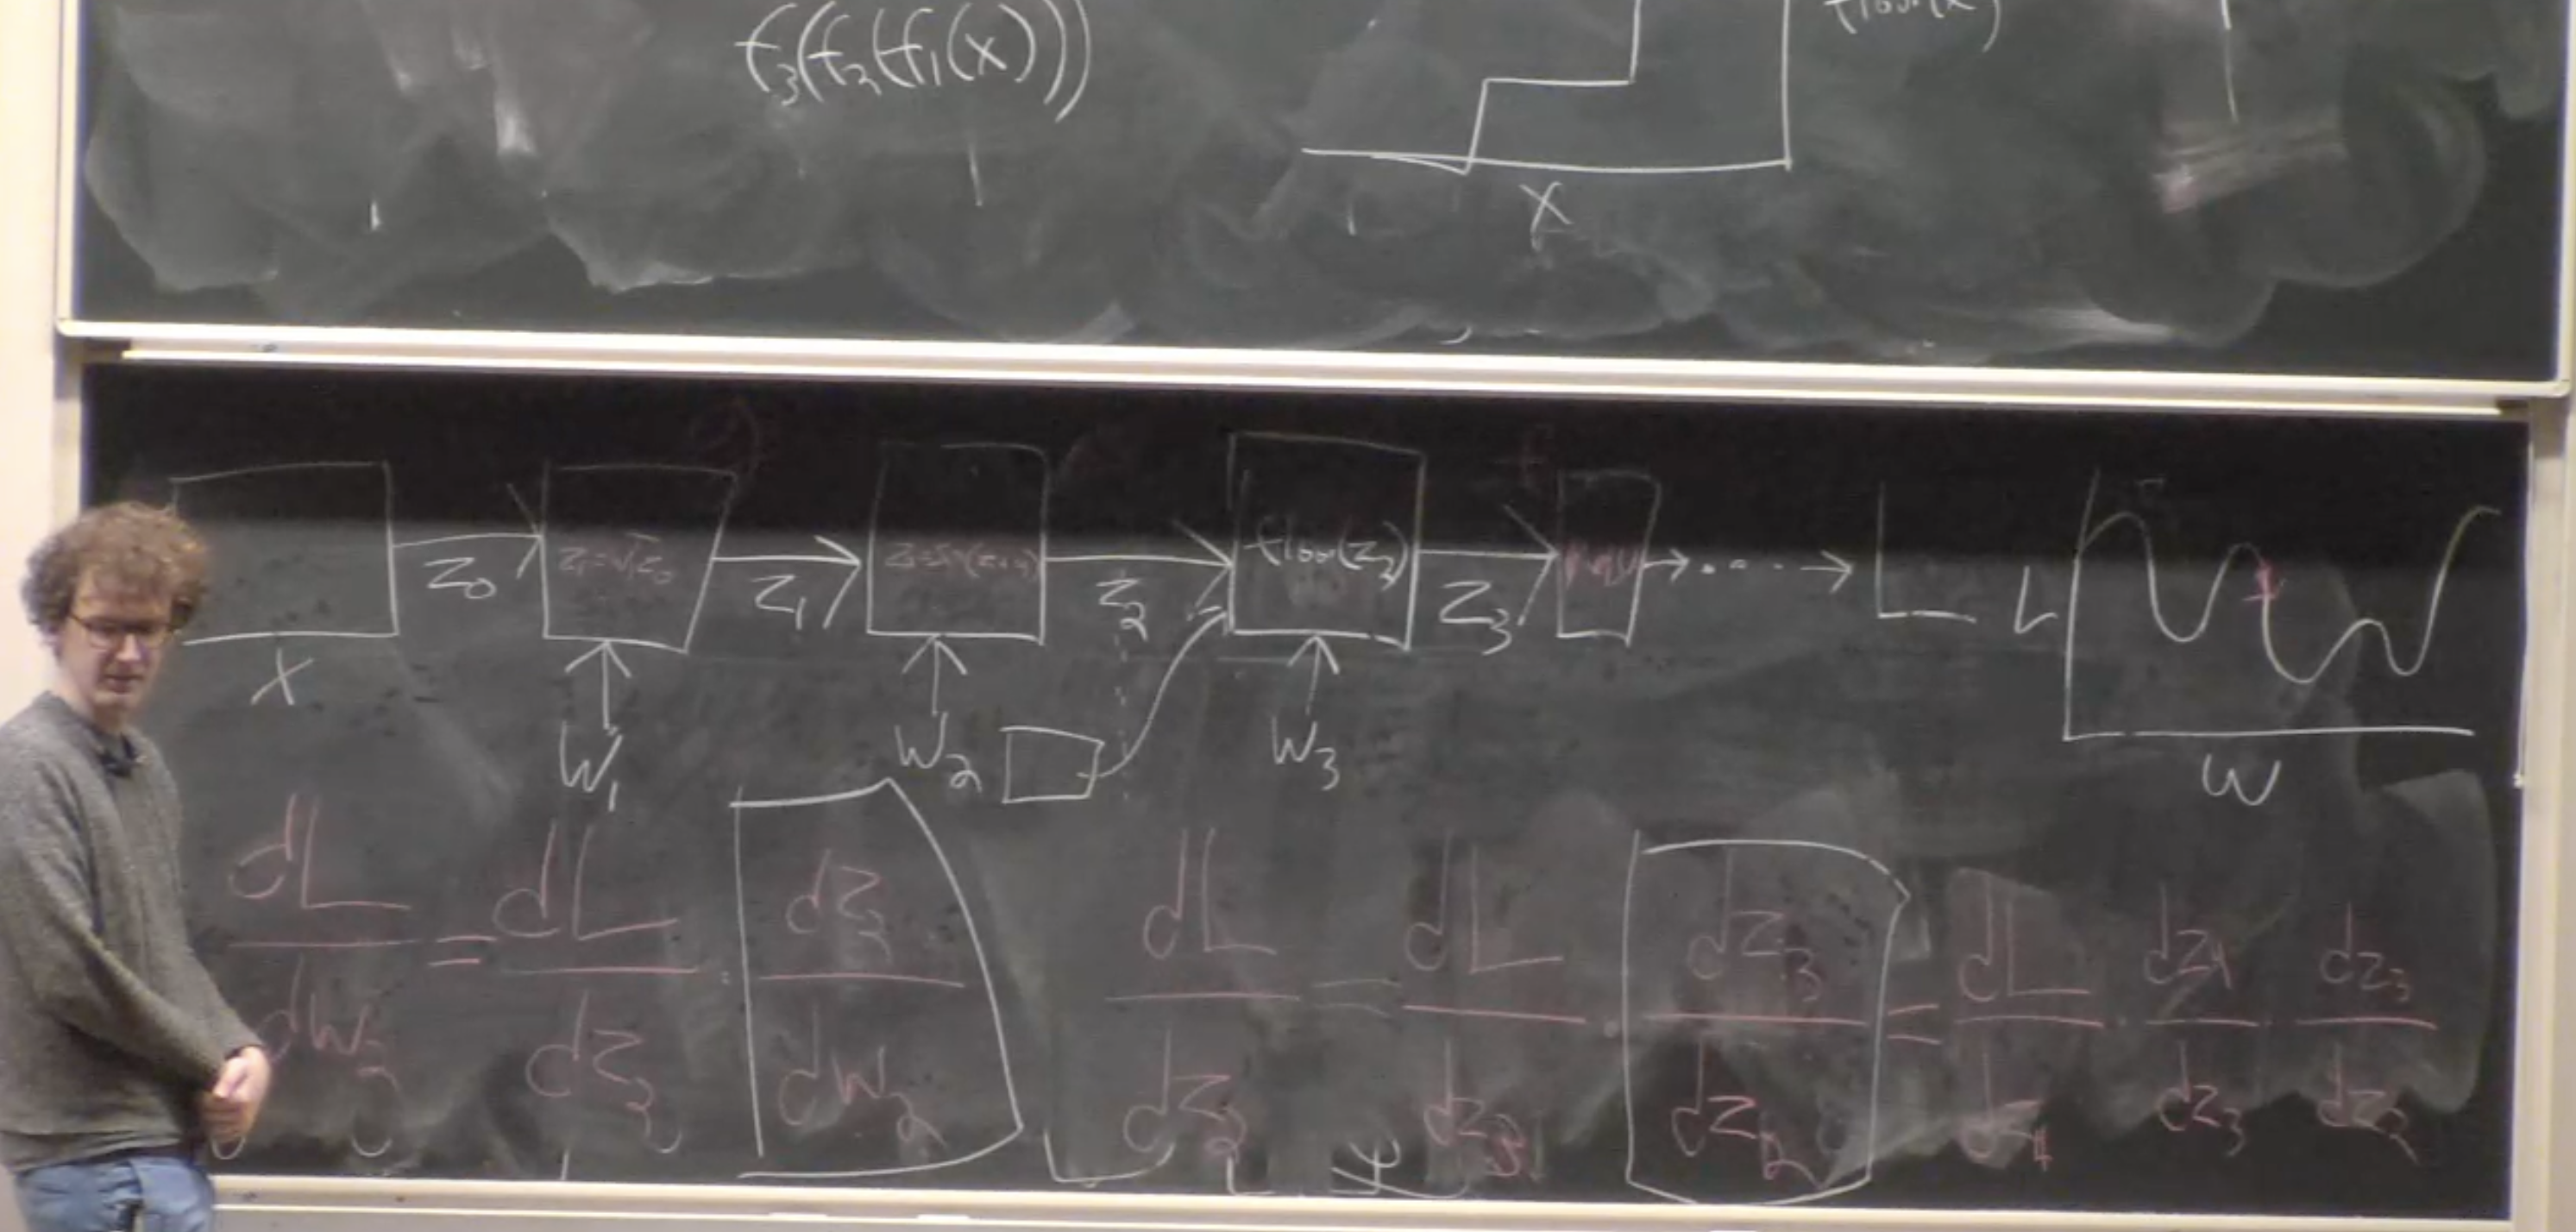 f₃(f₂(f₁(x)))
floor(x)
X
Z₀ Z₁=√Z₀ Z₁ Z₂ floor(Z₂) Z₃ L L
X
W₁ W₂ W₃ W
dL/dW₂ = dL/dZ₂ · dZ₂/dW₂
dL/dZ₂ = dL/dZ₃ · dZ₃/dZ₂ = dL/dZ₄ · dZ₄/dZ₃ · dZ₃/dZ₂